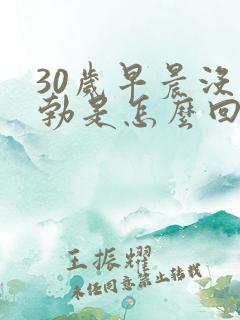 30歲早晨沒
勃是怎麼回
王振耀
未经同意禁止转载